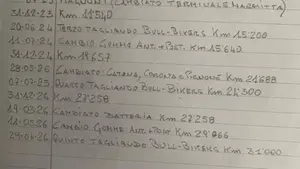 MALOSSI (CAMBIATO TERMINALE MARMITTA)
31.12.23 Km 11'540
20.06.24 TERZO TAGLIANDO BULL-BIKERS Km 15'200
11.07.24 CAMBIO GOMME ANT. + POST. Km 15'640
31.12.24 Km 19'657
28.05.25 CAMBIATO: CATENA, CORONA E PIGNONE Km 21'688
07.09.25 QUARTO TAGLIANDO BULL-BIKERS Km 24'300
31.12.26 Km 27258
19.03.26 CAMBIATO BATTERIA Km 27258
11.05.26 CAMBIO GOMME ANT + POST Km 29'866
29.06.26 QUINTO TAGLIANDO BULL-BIKERS Km. 31'000